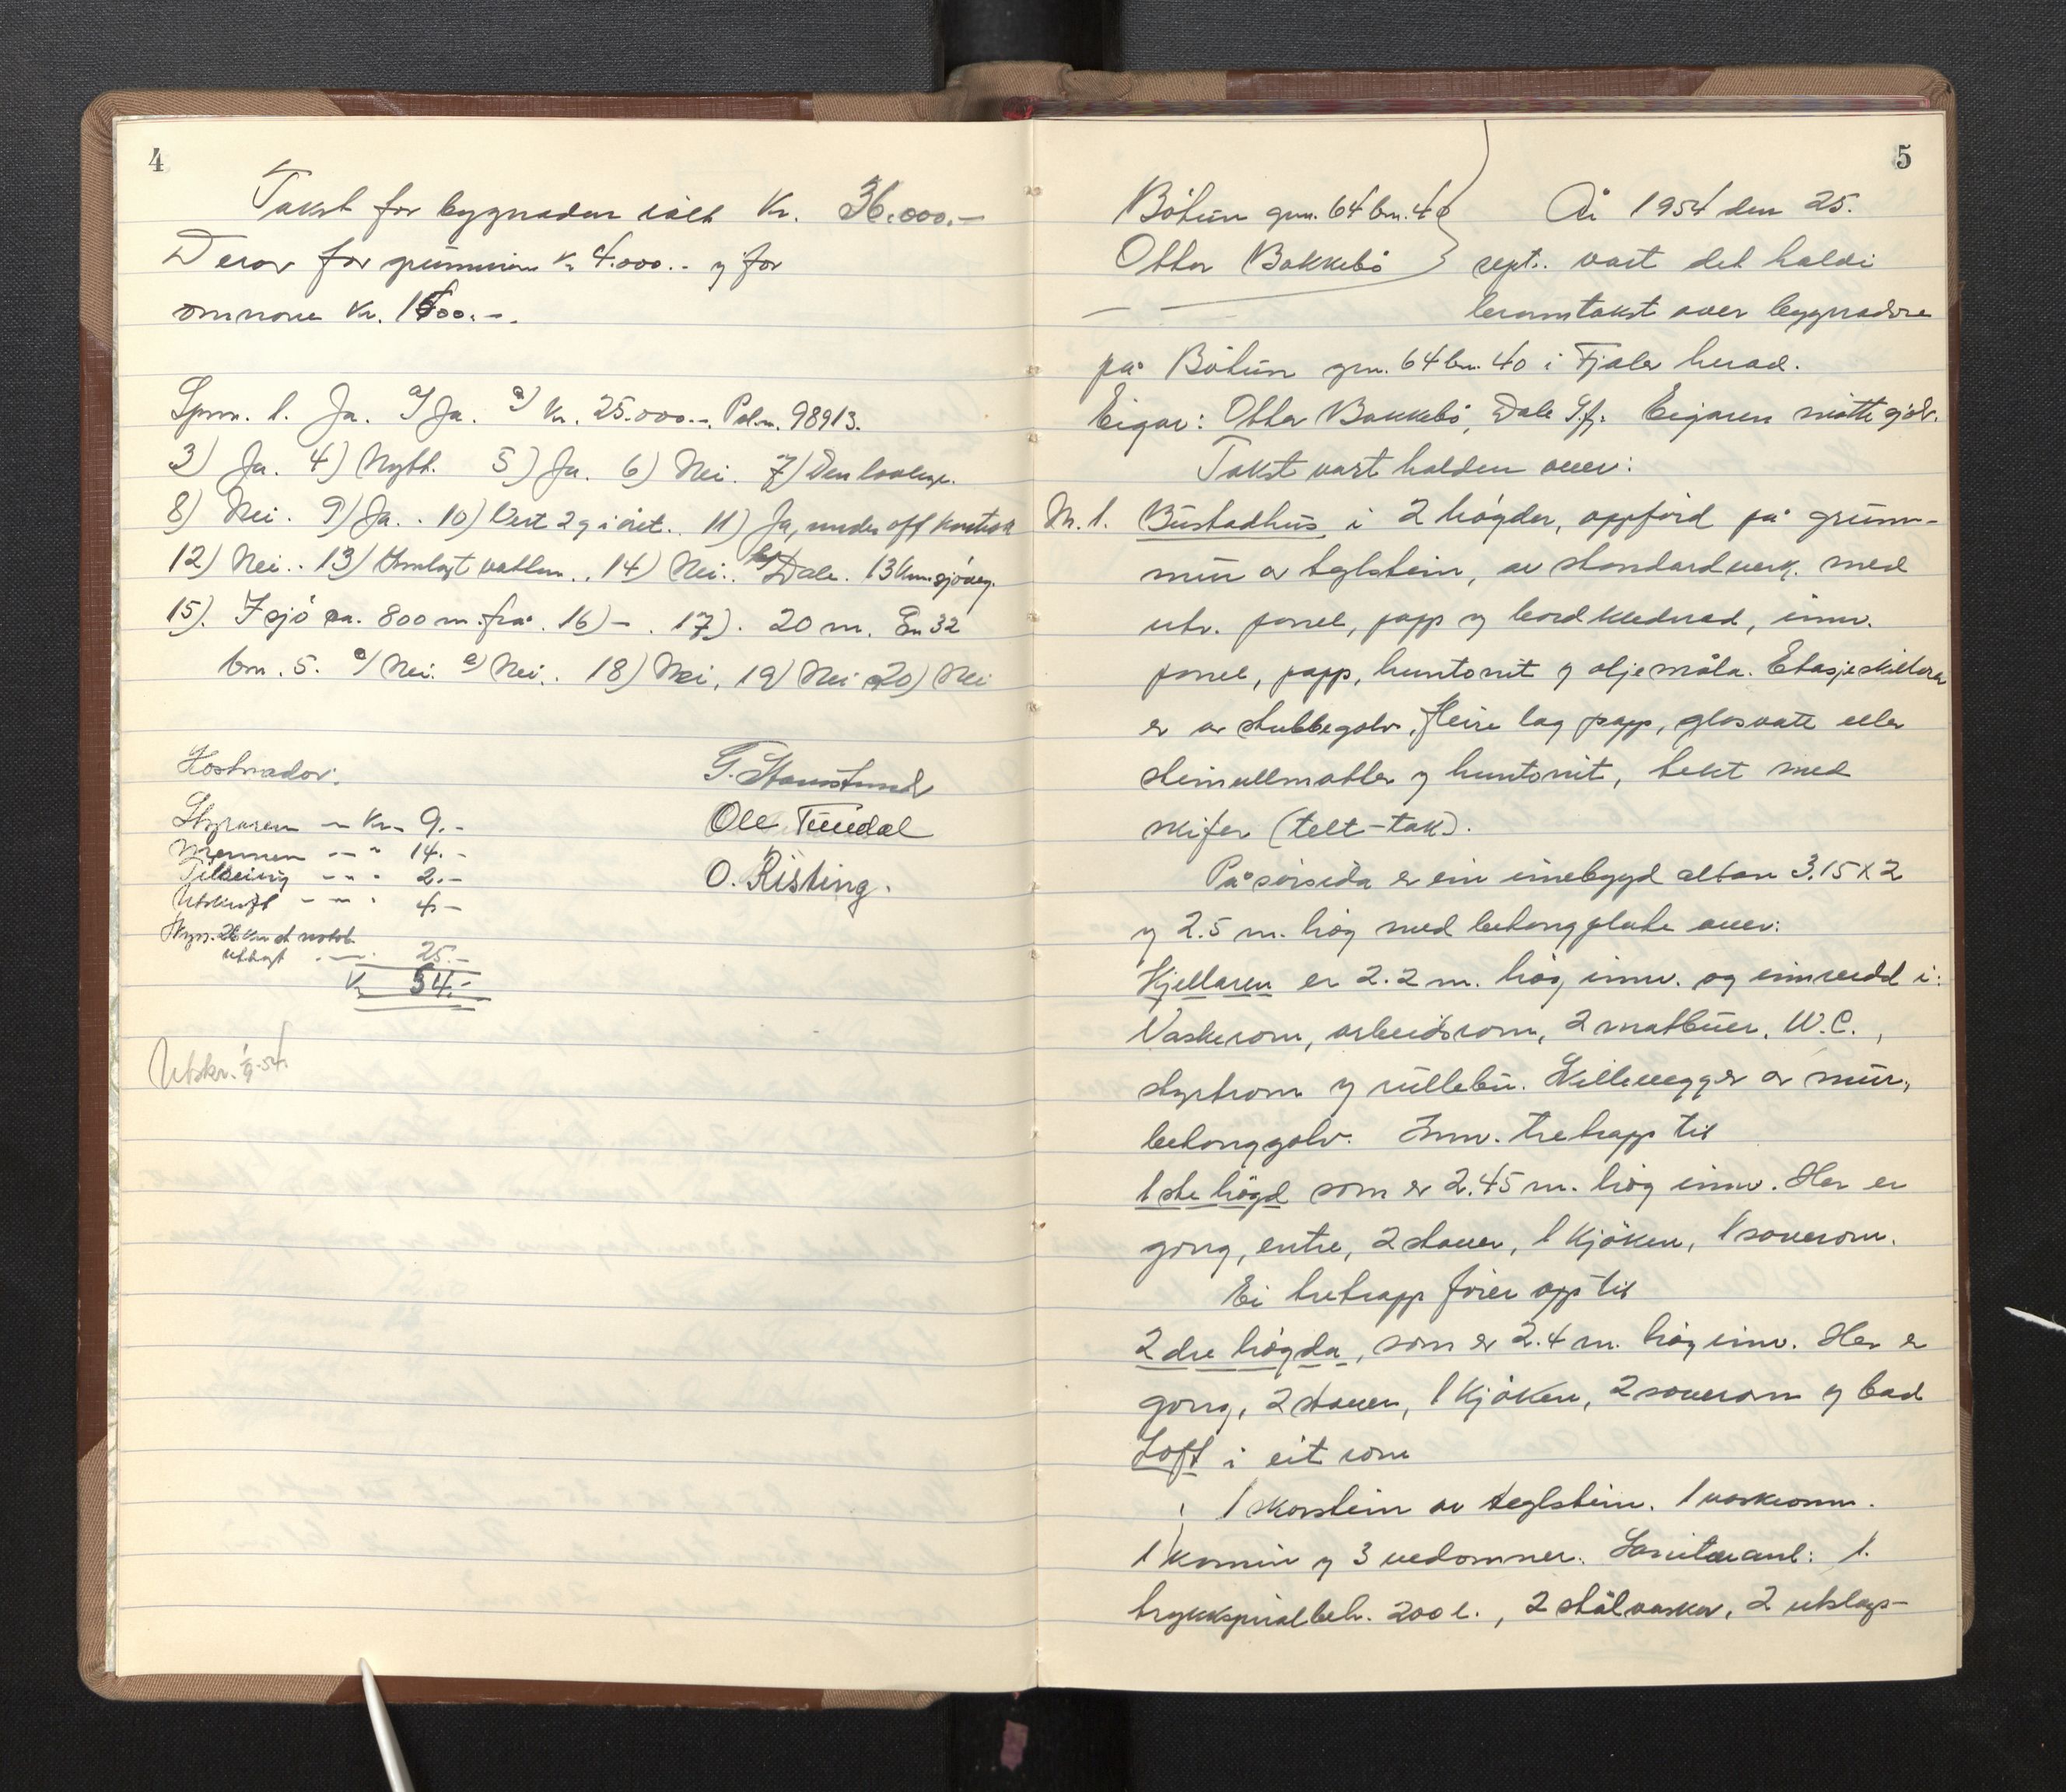 4
Takst for bygnaden ialt Kr. 36.000.-
Derav for grunnmur kr 4.000.- og for
omnane Kr. 1500.-.
Spm. 1. Ja. a) Ja. Kr. 25.000.-. Pol.n. 98913.
3) Ja. 4) Nytt. 5) Ja. 6) Nei. 7) Den lovlege.
8) Nei. 9) Ja. . 10) Vert 2 g i året. 11) Ja, under off kontroll
12) Nei. . 13) Innlagt vatten. . 14) Nei. . Dale. 13 km. sjöveg.
15). I sjö ca. 800 m. frå. 16) - . 17). 20 m. Gn 32
bn. 5. Nei. Nei. . 18) Nei, 19) Nei 20) Nei
Kostnader:
Styraren - Kr. 9.-
Mennene - - " 14.-
- - " 2.-
Utskrift - - " 4.-
25.-
Kr 54.-
Ole Tundal
O. Risting.
Utskr. 54.
5
Bötun gnr. 64 bn. 40
Ottar Bakkebö
År 1954 den 25.
sept. vart det haldi
branntakst over bygnadene
på Bötun gnr. 64 bn. 40 i Fjaler herad.
Eigar: Ottar Bakkebö, Dale S.fj. Eigaren mötte sjölv.
Takst vart halden over:
N. 1. Bustadhus i 2 högder, oppförd på grunn-
mur av teglstein, av standardverk. med
utv. panel, papp og bordklednad, innv.
panel, papp, huntonit og oljemåla. Etasjeskillera
er av stubbegolv, fleire lag papp, glasvatt eller
steinullmatter og huntonit, tekt med
skifer (telt-tak).
På sörsida er ein innebygd altan 3.15 x 2
og 2.5 m. hög med betongplate over:
Kjellaren er 2.2 m. hög innv. og innreidd i:
Vaskerom, arbeidsrom, 2 matbuer, W.C.,
styrtrom og rullebu. Skillevegger av mur,
betonggolv. Innv. tretrapp til
1ste högd som er 2.45 m. hög innv. Her er
gong, entre, 2 stover, 1 kjöken, 1 soverom.
Ei tretrapp förer opp til
2dre högda, som er 2.4 m. hög innv. Her er
gong, 2 stover, 1 kjöken, 2 soverom og bad
Loft i eit rom
1 skorstein av teglstein. 1 vaskeomn.
1 kamin og 3 vedomner. Sanitæranl: 1.
trykkspiralbeh. 200 l., 2 stålvasker, 2 utslags-